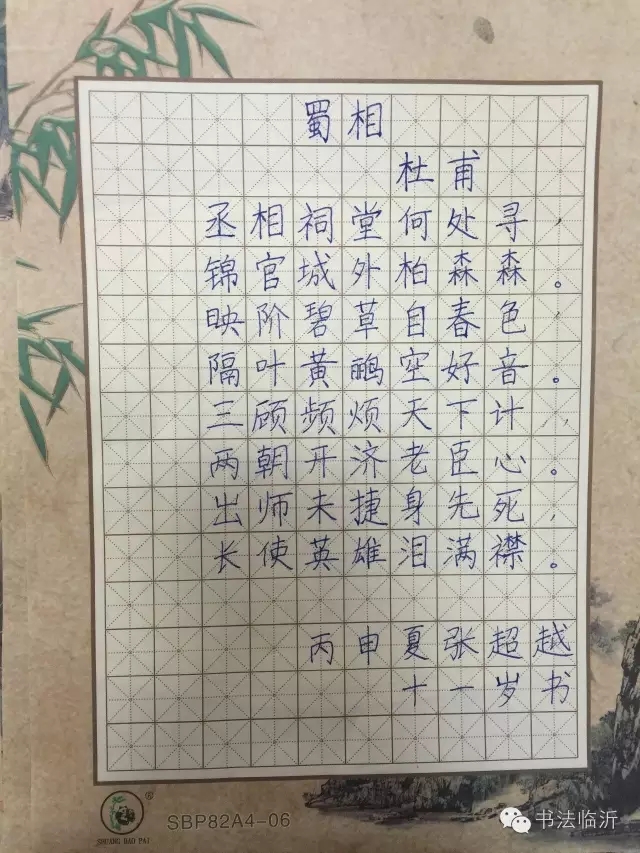 蜀相
杜甫
丞相祠堂何处寻，
锦官城外柏森森。
映阶碧草自春色，
隔叶黄鹂空好音。
三顾频烦天下计，
两朝开济老臣心。
出师未捷身先死，
长使英雄泪满襟。
丙申夏张超越
十一岁书
SHUANG BAO PAI
®
SBP82A4-06
书法临沂